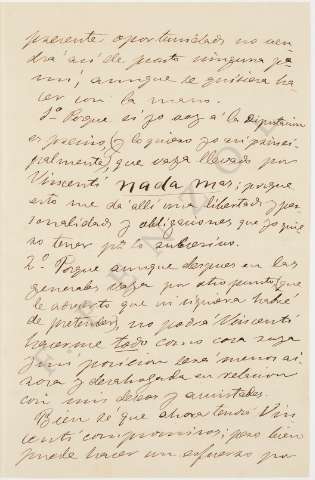 presente oportunidad no ven
drá así de pronto ninguna pª
mí, aunque se quisiera ha
cer con la mano.
1º Porque si yo voy á la Diputacion
es preciso, (y lo quiero yo así princi
palmente) que vaya llevado por
Vincenti, nada mas; porque
esto me dá allí una libertad y per
sonalidad y obligaciones que yo quie
ro tener pª lo subcesivo.
2º Porque aunque despues en las
generales vaya por otro punto, (que
le advierto que ni siquiera habré
de pretender), no podrá Vincenti
hacerme todo como cosa suya
y mi posicion será menos ai
rosa y desahogada en relacion
con mis deseos y amistades.
Bien sé que ahora tendrá Vin
centi compromisos; pero bien
puede hacer un esfuerzo por